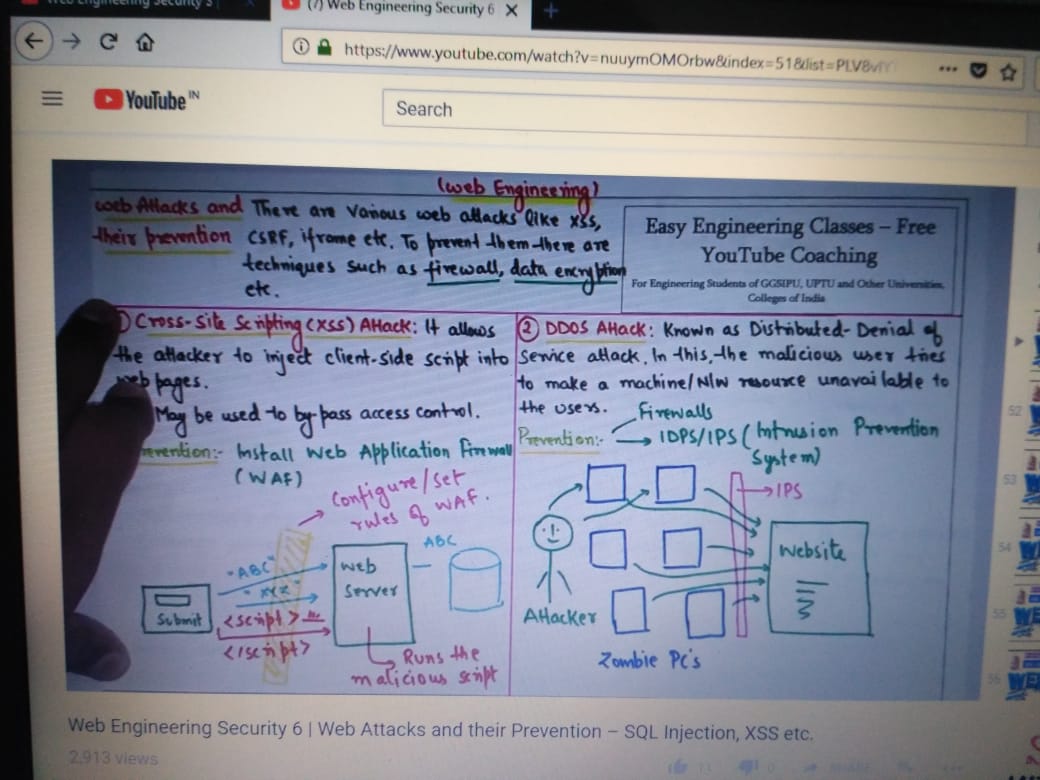 (7) Web Engineering Security 6
https://www.youtube.com/watch?v=nuuymOMOrbw&index=51&list=PLV8v
YouTube IN
Search
(Web Engineering)
Web Attacks and their prevention
There are various web attacks like XSS,
CSRF, iframe etc. To prevent them there are
techniques such as firewall, data encryption
etc.
Easy Engineering Classes – Free
YouTube Coaching
For Engineering Students of GGSIPU, UPTU and Other Universities,
Colleges of India
① Cross-Site Scripting (XSS) Attack: It allows
the attacker to inject client-side script into
web pages.
May be used to by-pass access control.
Prevention:- Install Web Application Firewall
(WAF)
Configure/set
rules of WAF.
"ABC"
"XYZ"
<script>
</script>
Submit
Web
Server
ABC
Runs the
malicious script
② DDOS Attack: Known as Distributed-Denial of
Service attack. In this, the malicious user tries
to make a machine/N/W resource unavailable to
the users.
Prevention:-
Firewalls
IDPS/IPS (Intrusion Prevention
System)
IPS
Website
Attacker
Zombie PC's
52
53
54
55
56
Web Engineering Security 6 | Web Attacks and their Prevention – SQL Injection, XSS etc.
2,913 views
11
0
SHARE